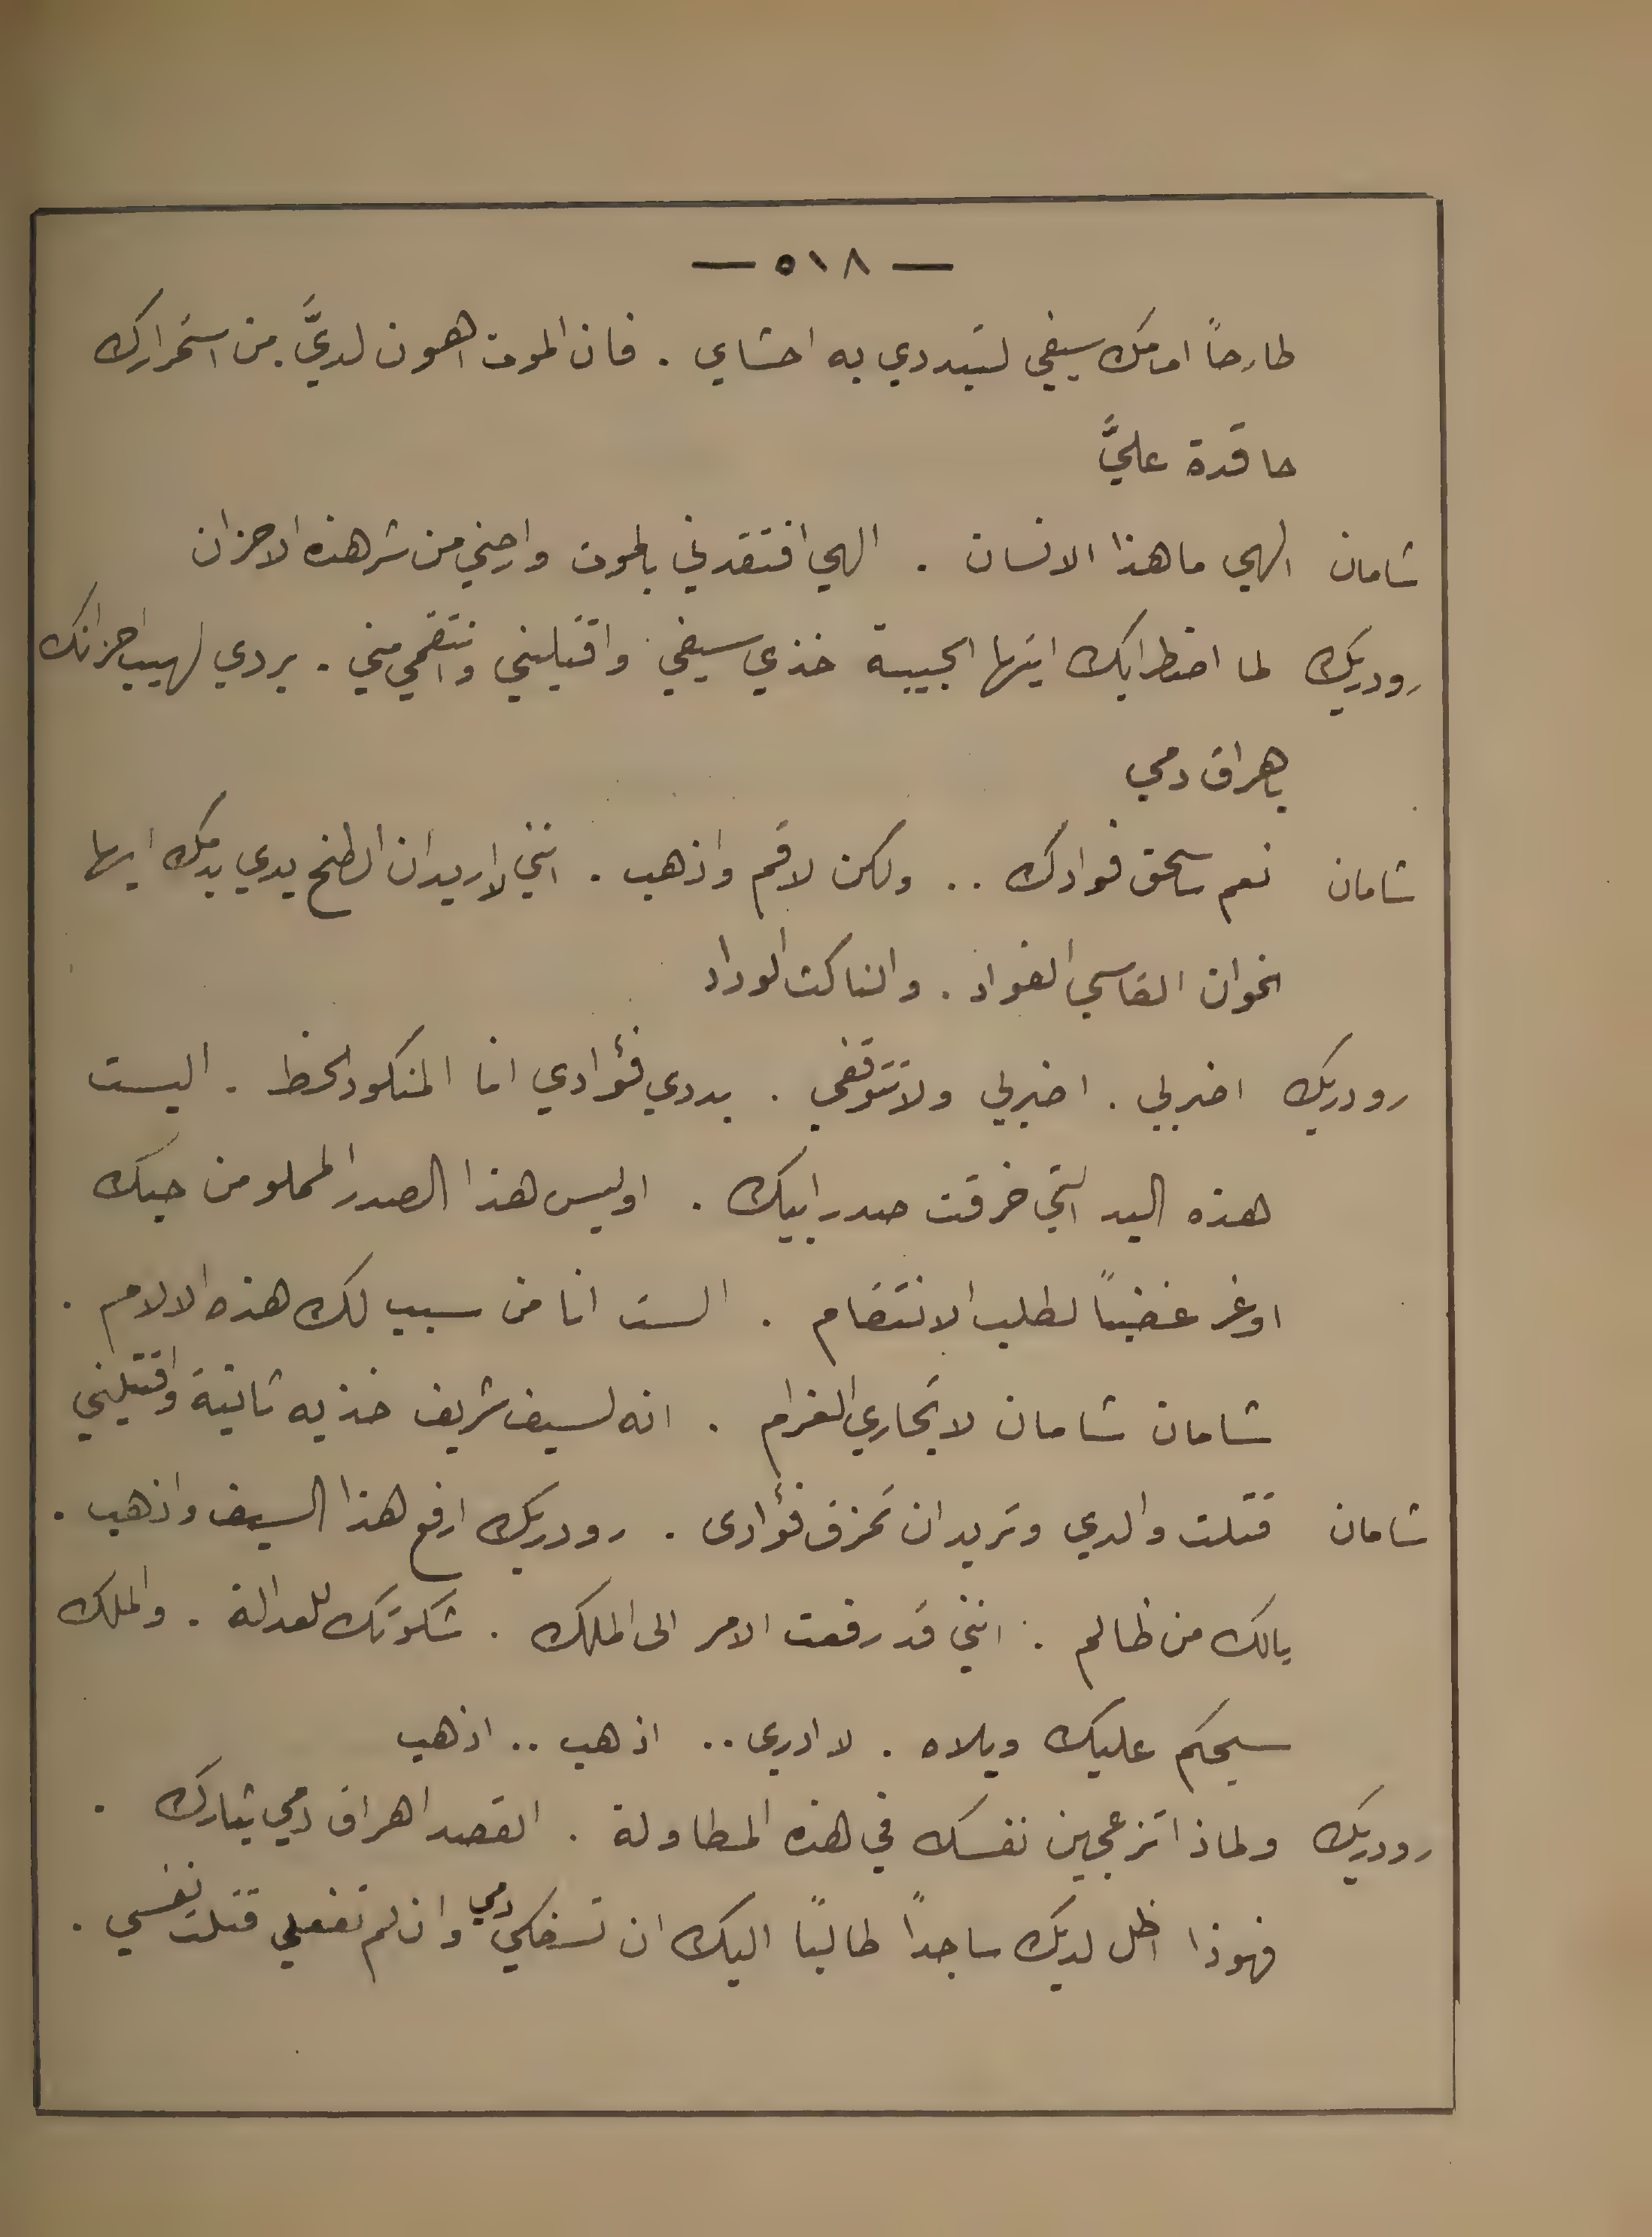 — ٥١٨ —
طارحاً امامك سيفي لتبددي به احشاي . فان الموت اهون لديَّ من استمرارك
حاقدة عليَّ
شامان الهي ما هذا الانسان . الهي افتقدني بالموت وارحني من شر هذه الاحزان
رودريك لما اضطرابك ايتها الحبيبة خذي سيفي واقتليني وانتقمي مني . بردي لهيب احزانك
باهراق دمي
شامان نعم ساسحق فوادك .. ولكن لا قم واذهب . انني لا اريد ان الطخ يدي بدمك ايها
الخوان القاسي الفواد . والناكث الوداد
رودريك اضربي . اضربي ولا تتوقفي . بددي فؤادي انا المنكود الحظ . اليست
هذه اليد التي خرقت صدر ابيك . اوليس هذا الصدر المملو من حبك
اوغر غضباً لطلب الانتقام . الست انا من سبب لك هذه الالام .
شامان شامان لا تجاري الغرام . انه لسيف شريف خذيه ثانية واقتليني
شامان قتلت والدي وتريد ان تمزق فؤادى . رودريك ارفع هذا السيف واذهب .
يالك من ظالم . انني قد رفعت الامر الى الملك . شكوتك للعدالة . والملك
سيحكم عليك ويلاه . لا ادرى .. اذهب .. اذهب
رودريك ولماذا تزعجين نفسك في هذه المطاولة . القصد اهراق دمي بثارك .
فهوذا اظل لديك ساجداً طالبًا اليك ان تسفكي دمي وان لم تفعلي قتلت نفسي .